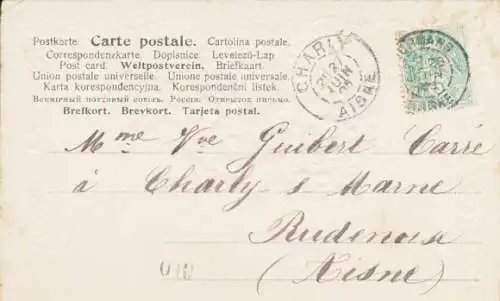 Postkarte Carte postale. Cartolina postale.
Correspondenzkarte Dopisnice Levelező-Lap
Post card. Weltpostverein. Briefkaart.
Union postale universelle. Unione postale universale.
Karta korespondencyjna. Korespondenční listek.
Всемирный почтовый союзъ. Россія. Открытое письмо.
Brefkort. Brevkort. Tarjeta postal.
CHARLY
JUIN
AISNE
Mme Vve Guibert Carré
à Charly s Marne
(Aisne)